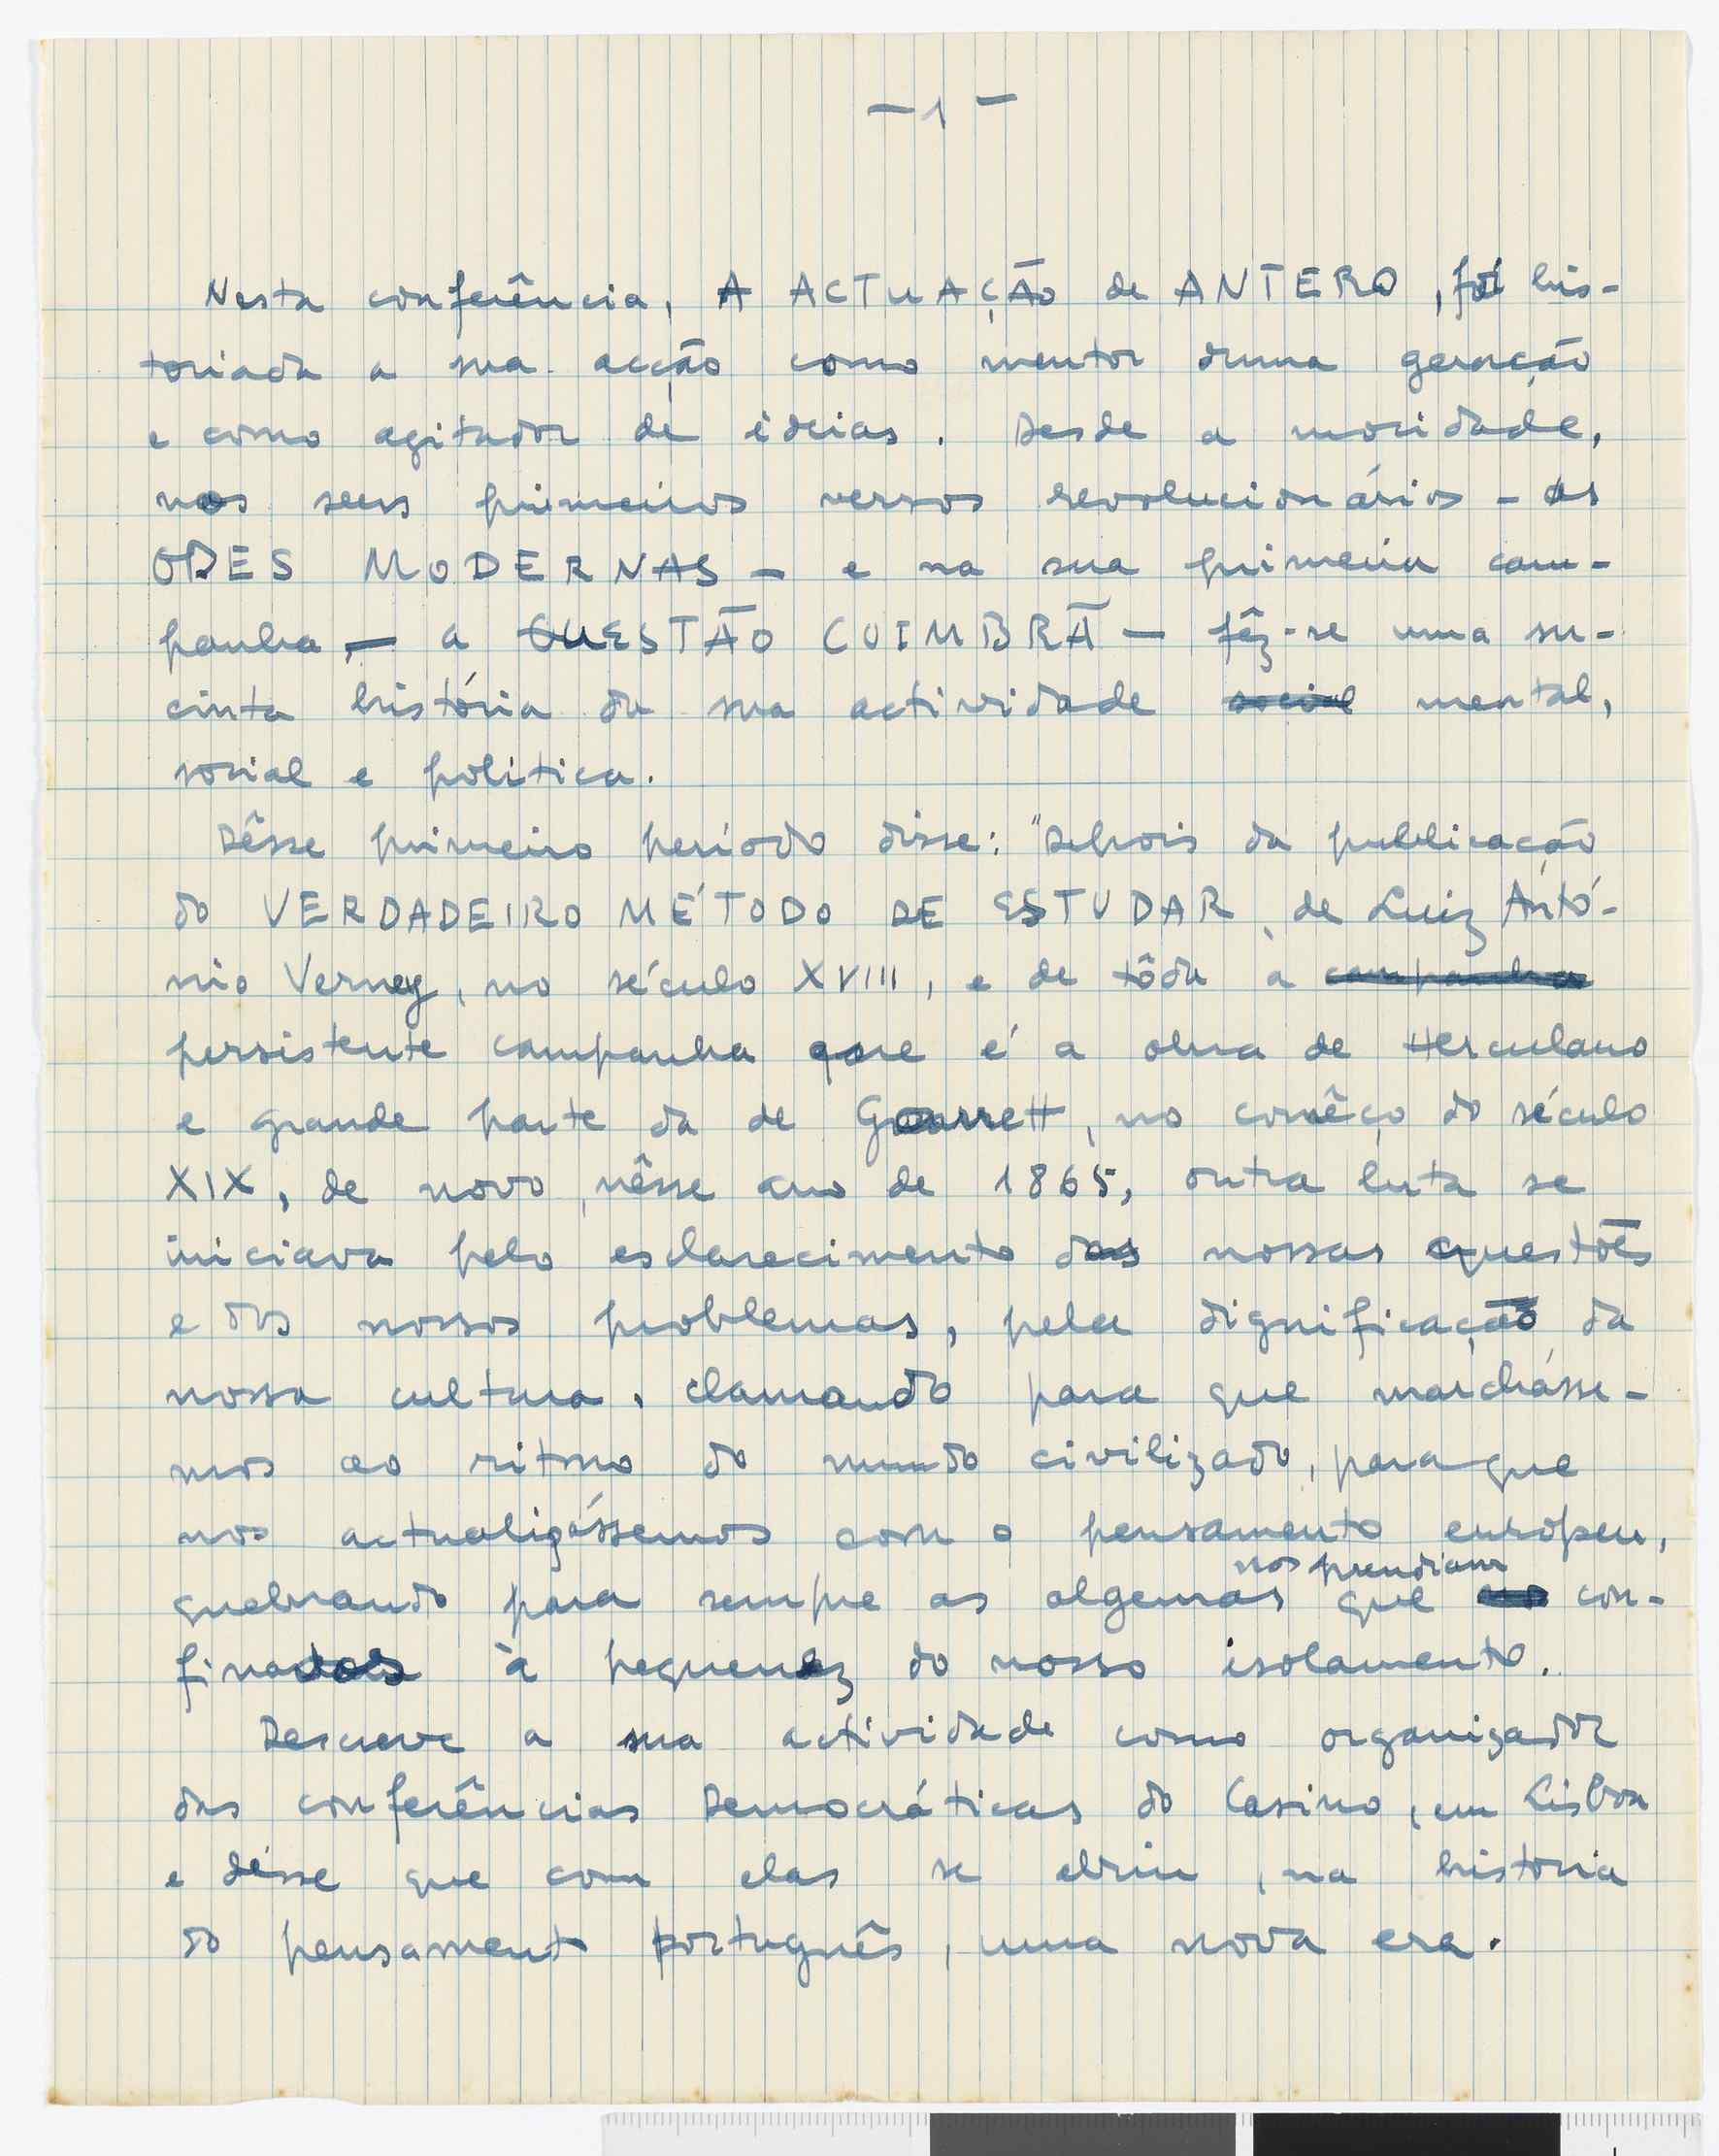 — 1 —
Nesta conferência, A ACTUAÇÃO de ANTERO, foi his-
toriada a sua acção como mentor duma geração
e como agitador de ideias. Desde a mocidade,
nos seus primeiros versos revolucionários - as
ODES MODERNAS - e na sua primeira cam-
panha, — a QUESTÃO COIMBRÃ — fêz-se uma su-
cinta história da sua actividade social mental,
social e politica.
Dêsse primeiro periodo disse: "Depois da publicação
do VERDADEIRO MÉTODO DE ESTUDAR, de Luiz Antó-
nio Verney, no século XVIII, e de tôda a campanha
persistente campanha que é a obra de Herculano
e grande parte da de Garrett, no comêço do século
XIX, de novo, nêsse ano de 1865, outra luta se
iniciava pelo esclarecimento das nossas questões
e dos nossos problemas, pela dignificação da
nossa cultura, clamando para que marchásse-
mos ao ritmo do mundo civilizado, para que
nos actualizássemos com o pensamento europeu,
nos prendiam
quebrando para sempre as algemas que con-
finados à pequenez do nosso isolamento.
Descreve a sua actividade como organizador
das conferências Democráticas do Casino, em Lisboa
e disse que com elas se abriu, na historia
do pensamento português, uma nova era.